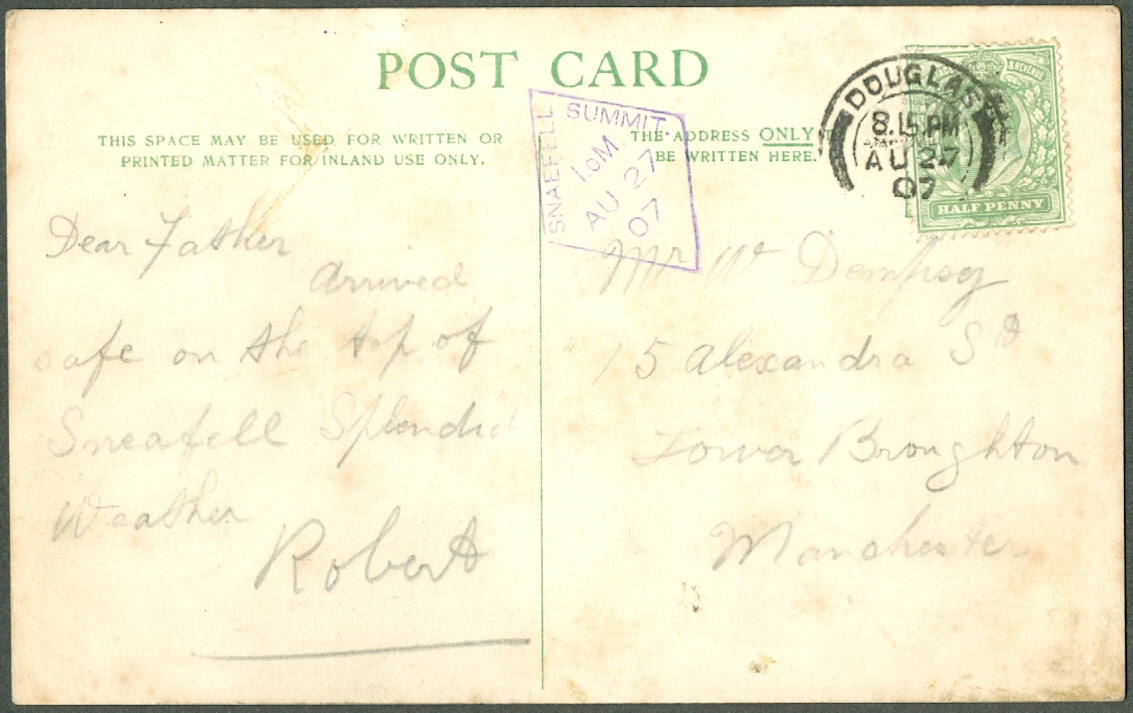 POST CARD
THIS SPACE MAY BE USED FOR WRITTEN OR
PRINTED MATTER FOR INLAND USE ONLY.
THE ADDRESS ONLY
BE WRITTEN HERE.
SNAEFELL
SUMMIT.
I.OM.
AU 27
07
DOUGLAS
8.15 PM
AU 27
07
HALF PENNY
Dear Father
Arrived
safe on the top of
Sneafell Splendid
Weather
Robert
Mr W Dempsey
15 Alexandra St
Lower Broughton
Manchester